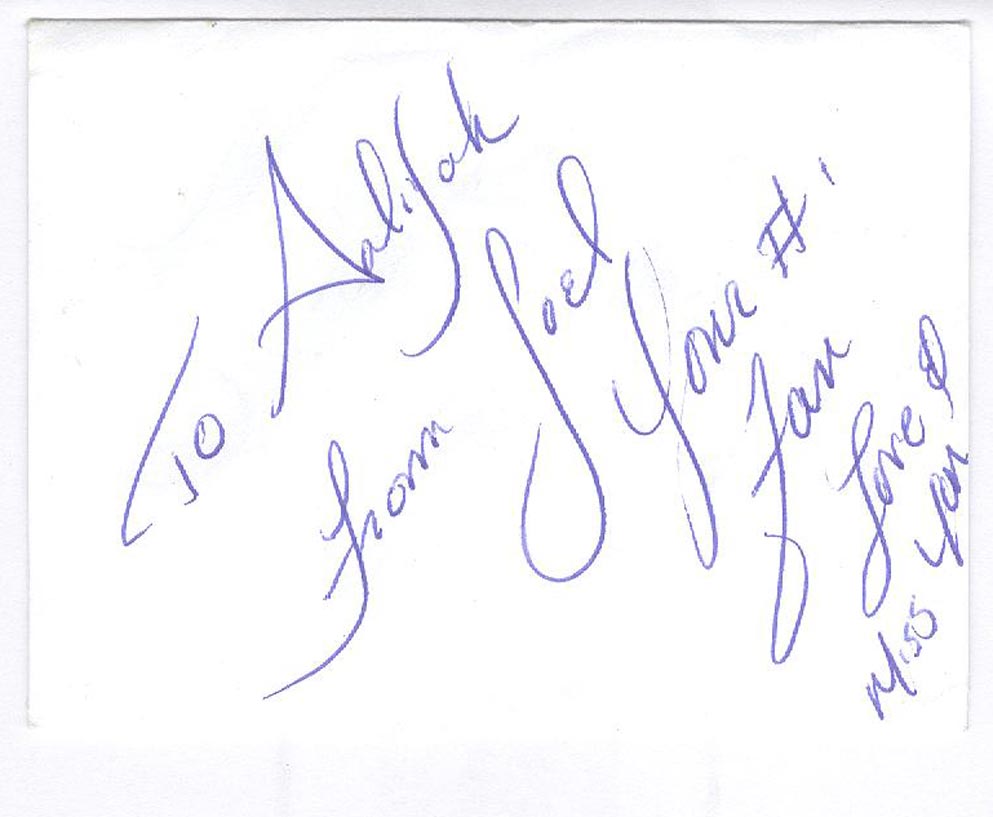 To Aaliyah
from Joel
Your #1
Fan
Love &
Miss You